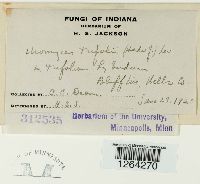 FUNGI OF INDIANA
HERBARIUM OF
H. S. JACKSON
Uromyces Trifolii (Hedw. f.) Lev
on Trifolium
Bluffton Wells Co
COLLECTED BY C. C. Deam June 29, 19
DETERMINED BY H.S.J.
312535 Herbarium of the University,
Minneapolis, Minn
OF MINNESOTA
1264270